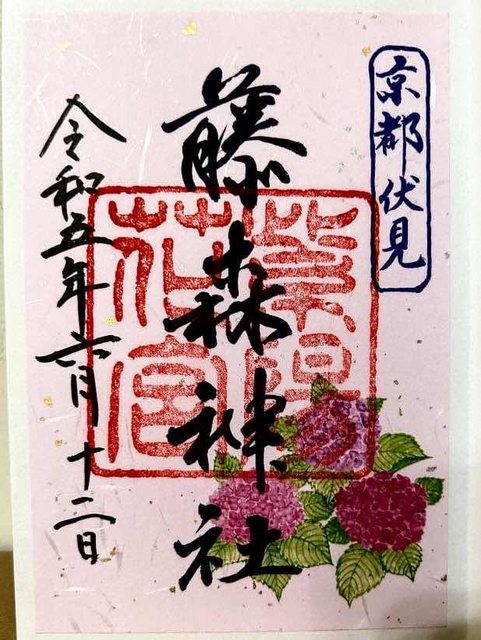 京都伏見
藤森神社
紫陽
花宮
令和五年六月十二日